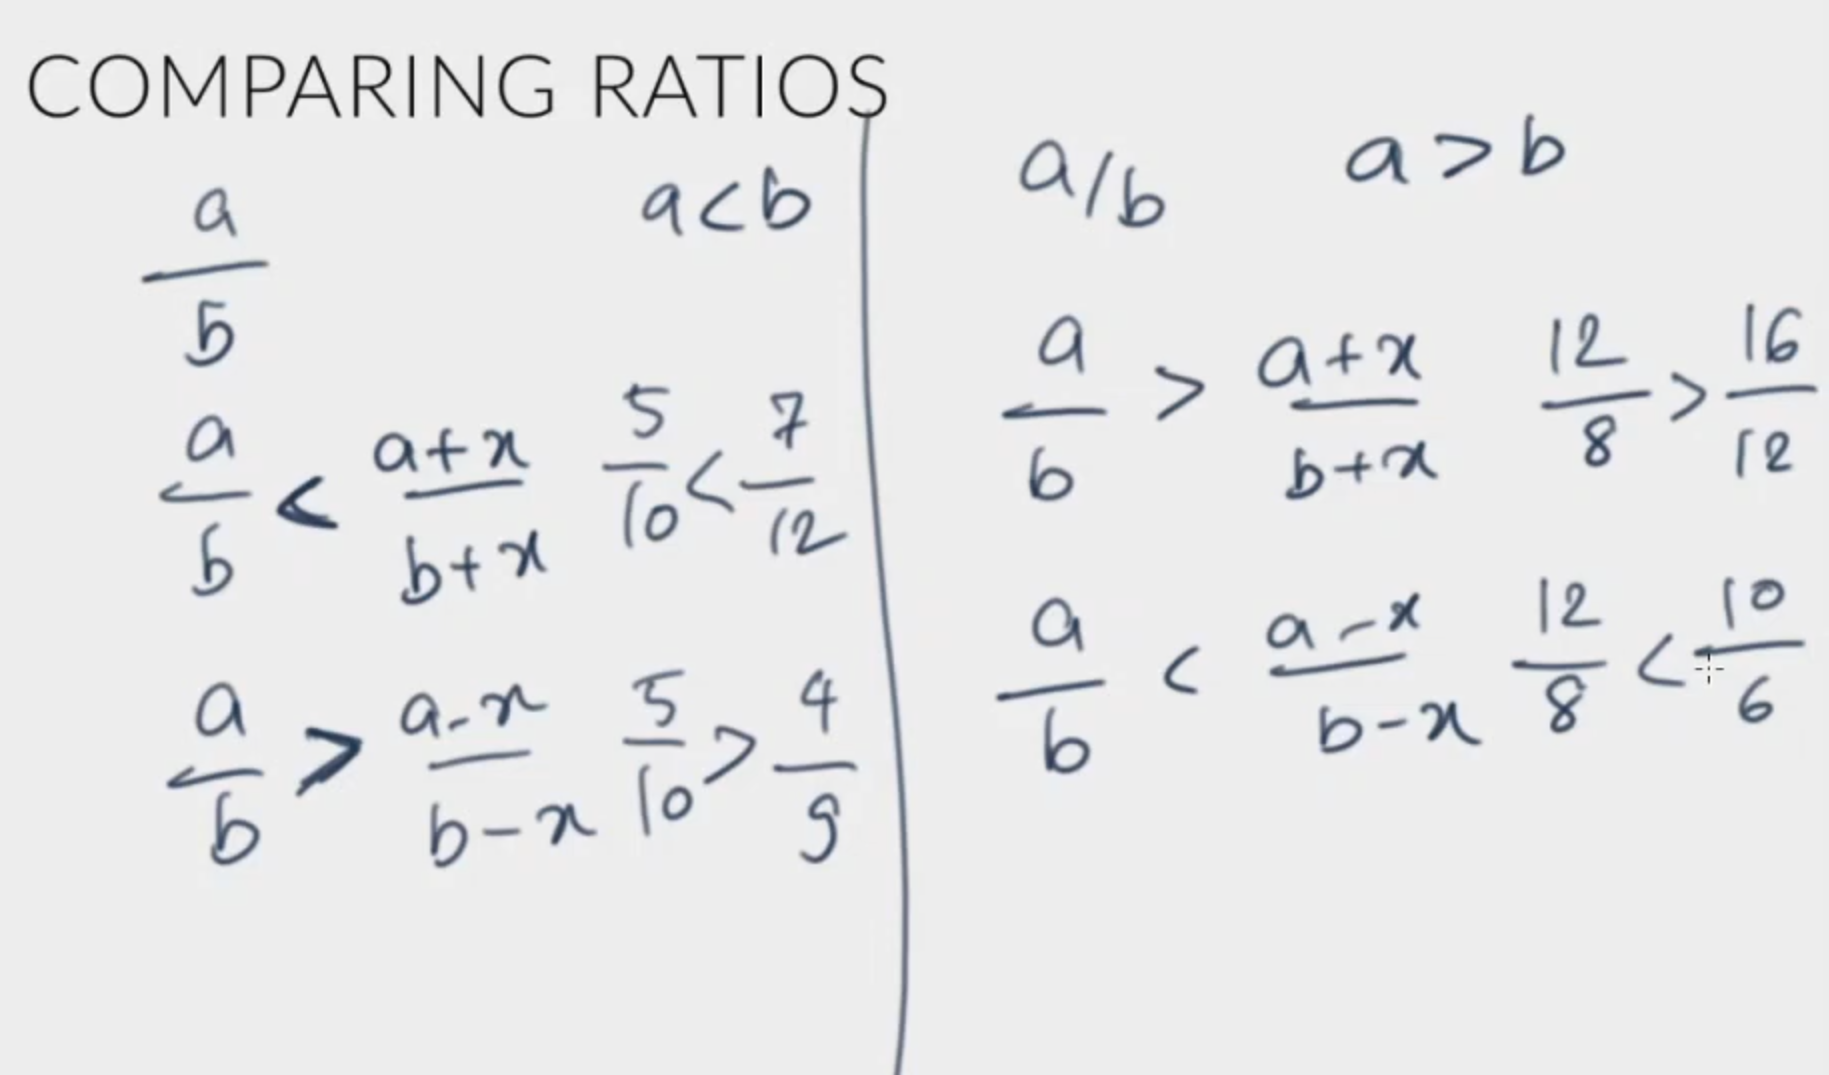 COMPARING RATIOS
a/b a<b
a/b < a+x/b+x 5/10 < 7/12
a/b > a-x/b-x 5/10 > 4/9
a/b a>b
a/b > a+x/b+x 12/8 > 16/12
a/b < a-x/b-x 12/8 < 10/6